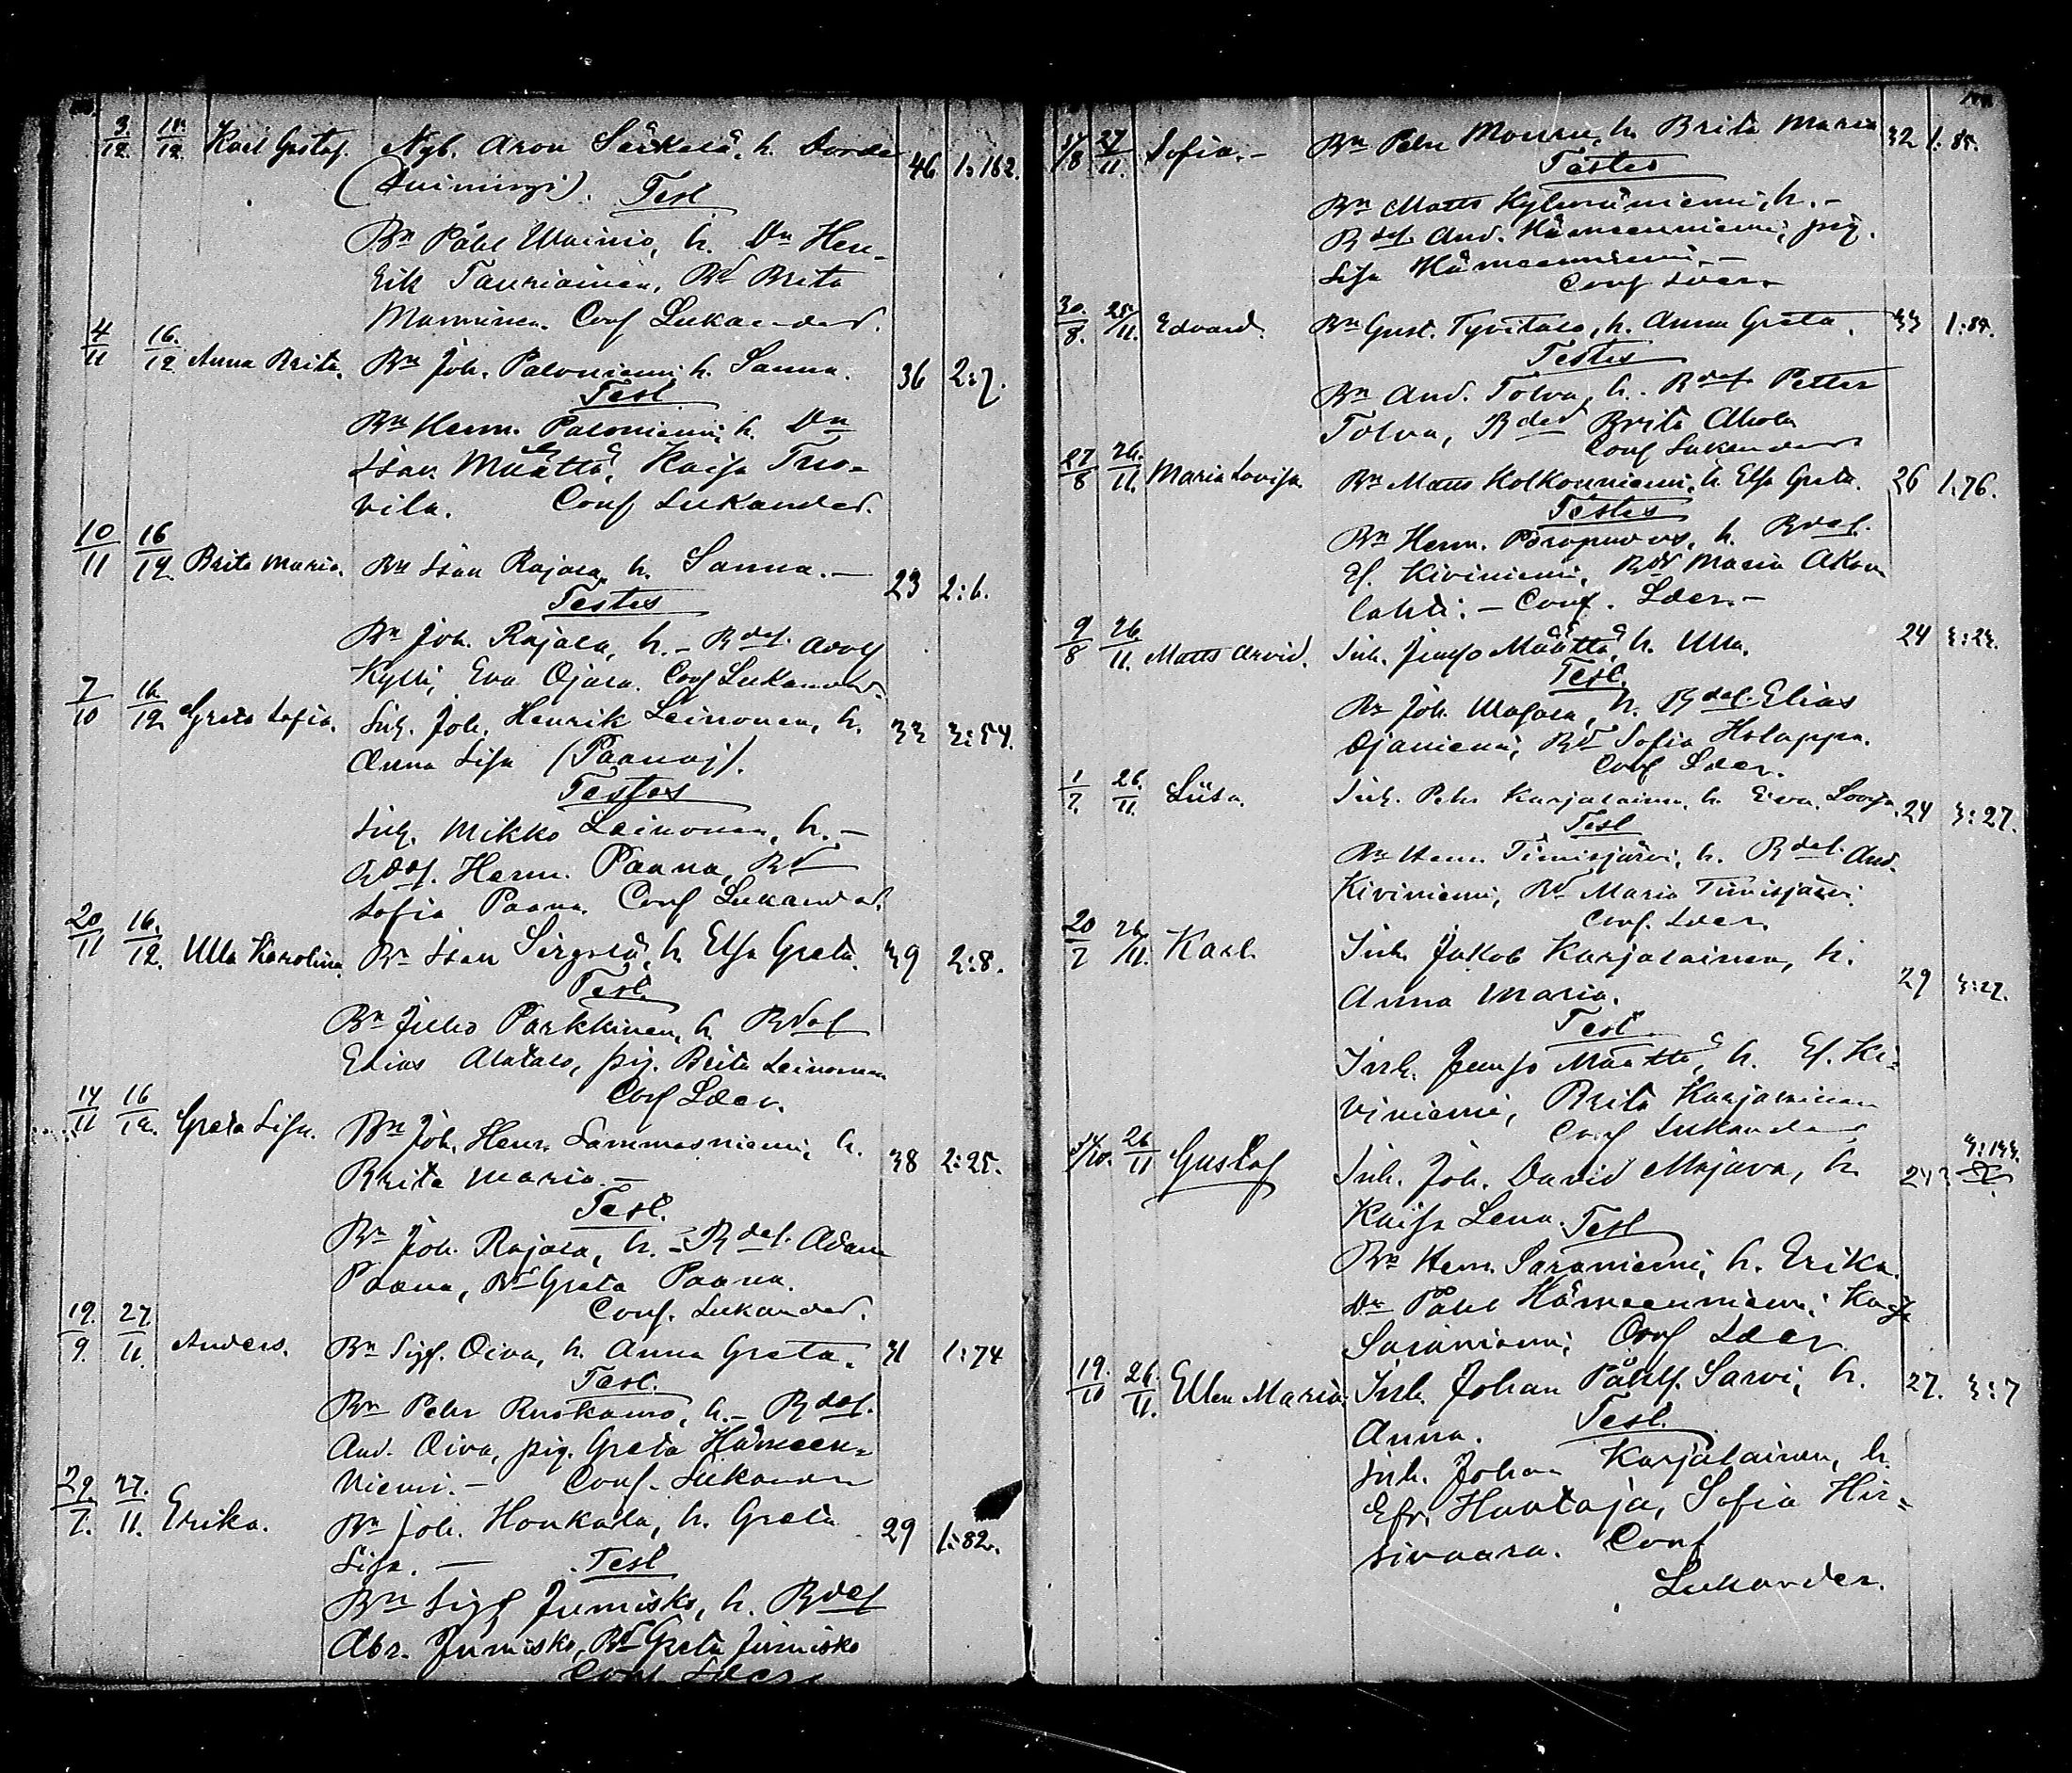 3/12 18/12 Karl Gustaf. Nyb. Aron Särkelä, h. 46 1:162.
Test
Bn Påhl Wainio, h. Dn Hen-
rik Tauriainen, Bd Brita
Manninen. Conf Lukander.
4/11 16/12 Anna Brita. Bn Joh. Paloniemi h. Sanna. 36 2:7.
Test
Bn Herm. Paloniemi, h. Dn
Isak Määttä, Kaisa Tuo-
vila. Conf Lukander.
10/11 16/12 Brita Maria. Bn Isak Rajala, h. Sanna.— 23 2:6.
Testes
Bn Joh. Rajala, h.— Bdes. Adolf
Kylli, Eva Ojala. Conf Lukander.
7/10 16/12 Greta Sofia. Inh. Joh. Henrik Leinonen, h. 33 3:54.
Anna Lisa (Paanaj).
Testes
Inh. Mikko Leinonen, h.—
Bdes. Herm. Paana, Bd
Sofia Paana. Conf Lukander.
20/11 16/12. Ulla Karolina. Bn Isak Sirpelä, h. Elsa Greta. 39 2:8.
Test.
Bn Juho Parkkinen, h. Bdes
Elias Alatalo, pig. Brita Leinonen
Conf Lder.
14/11 16/12. Greta Lisa. Bn Joh. Henr. Lammasniemi, h. 38 2:25.
Brita Maria.—
Test.
Bn Joh. Rajala, h.— Bdes. Adam
Paana, Bd Greta Paana.
Conf. Lukander.
19/9. 27/11. Anders. Bn Sigf. Oiva, h. Anna Greta. 31 1:74
Test.
Bn Pehr Ruokamo, h.— Bdes.
And. Oiva, pig. Greta Hämeen-
niemi.— Conf. Lukander
29/7. 27/11. Erika. Bn Joh. Honkala, h. Greta 29 1:82.
Lisa.— Test
Bn Sigf Jumisko, h. Bdes
Abr. Jumisko, Bd Greta Jumisko
Conf Lder.
27/11. Sofia.— Bn Pehr Mouru, h. Brita Maria 32 1:85.
Testes
Bn Matts Kylmäniemi, h.—
Bdes. And. Hämeenniemi, pig.
Lisa Hämeenniemi.—
Conf Lder.
30/8. 25/11. Edvard. Bn Gust. Tyvitalo, h. Anna Greta. 33 1:85.
Testes
Bn And. Tolva, h. Bdes. Petter
Tolva, Bded Brita Ahola
Conf Lukander
27/8 26/11. Maria Lovisa. Bn Matts Kolkonniemi, h. Elsa Greta. 26 1:76.
Testes
Bn Herm. Poropudas, h. Bdes.
Ef. Kiviniemi, Bdr Maria Akon-
lahti.— Conf. Lder.—
9/8 26/11. Matts Arvid. Inh. Määttä, h. Ulla. 24 3:23.
Test.
Bn Joh. h. Bdes. Elias
Ojaniemi, Bd Sofia Holappa.
Conf Lder.
1/7. 26/11. Liisa. Inh. Pehr Karjalainen, h. Eva Lovisa. 24 3:27.
Test
Bn Herm. Timisjärvi, h. Bdes. And.
Kiviniemi, Bd Maria Timisjärvi.
Conf. Lder.
20/7 26/11. Karl. Inh. Jakob Karjalainen, h. 29 3:27.
Anna Maria.
Test
Inh. Määttä, h. Ef. Ki-
viniemi, Brita Karjalainen
Conf Lukander
26/11 Gustaf Inh. Joh. David Majava, h. 3:133.
Kaisa Lena. Test
Bn Herm. Saraniemi, h. Erika.
Dn Påhl Hämeenniemi, Kaisa
Saraniemi, Conf Lder.
19/10 26/11. Ellen Maria. Inh. Johan Påhlf. Sarvi, h. 27. 3:7
Anna. Test.
Inh. Johan Karjalainen, h.
Efr. Huotaja, Sofia Hir-
sivaara. Conf
Lukander.